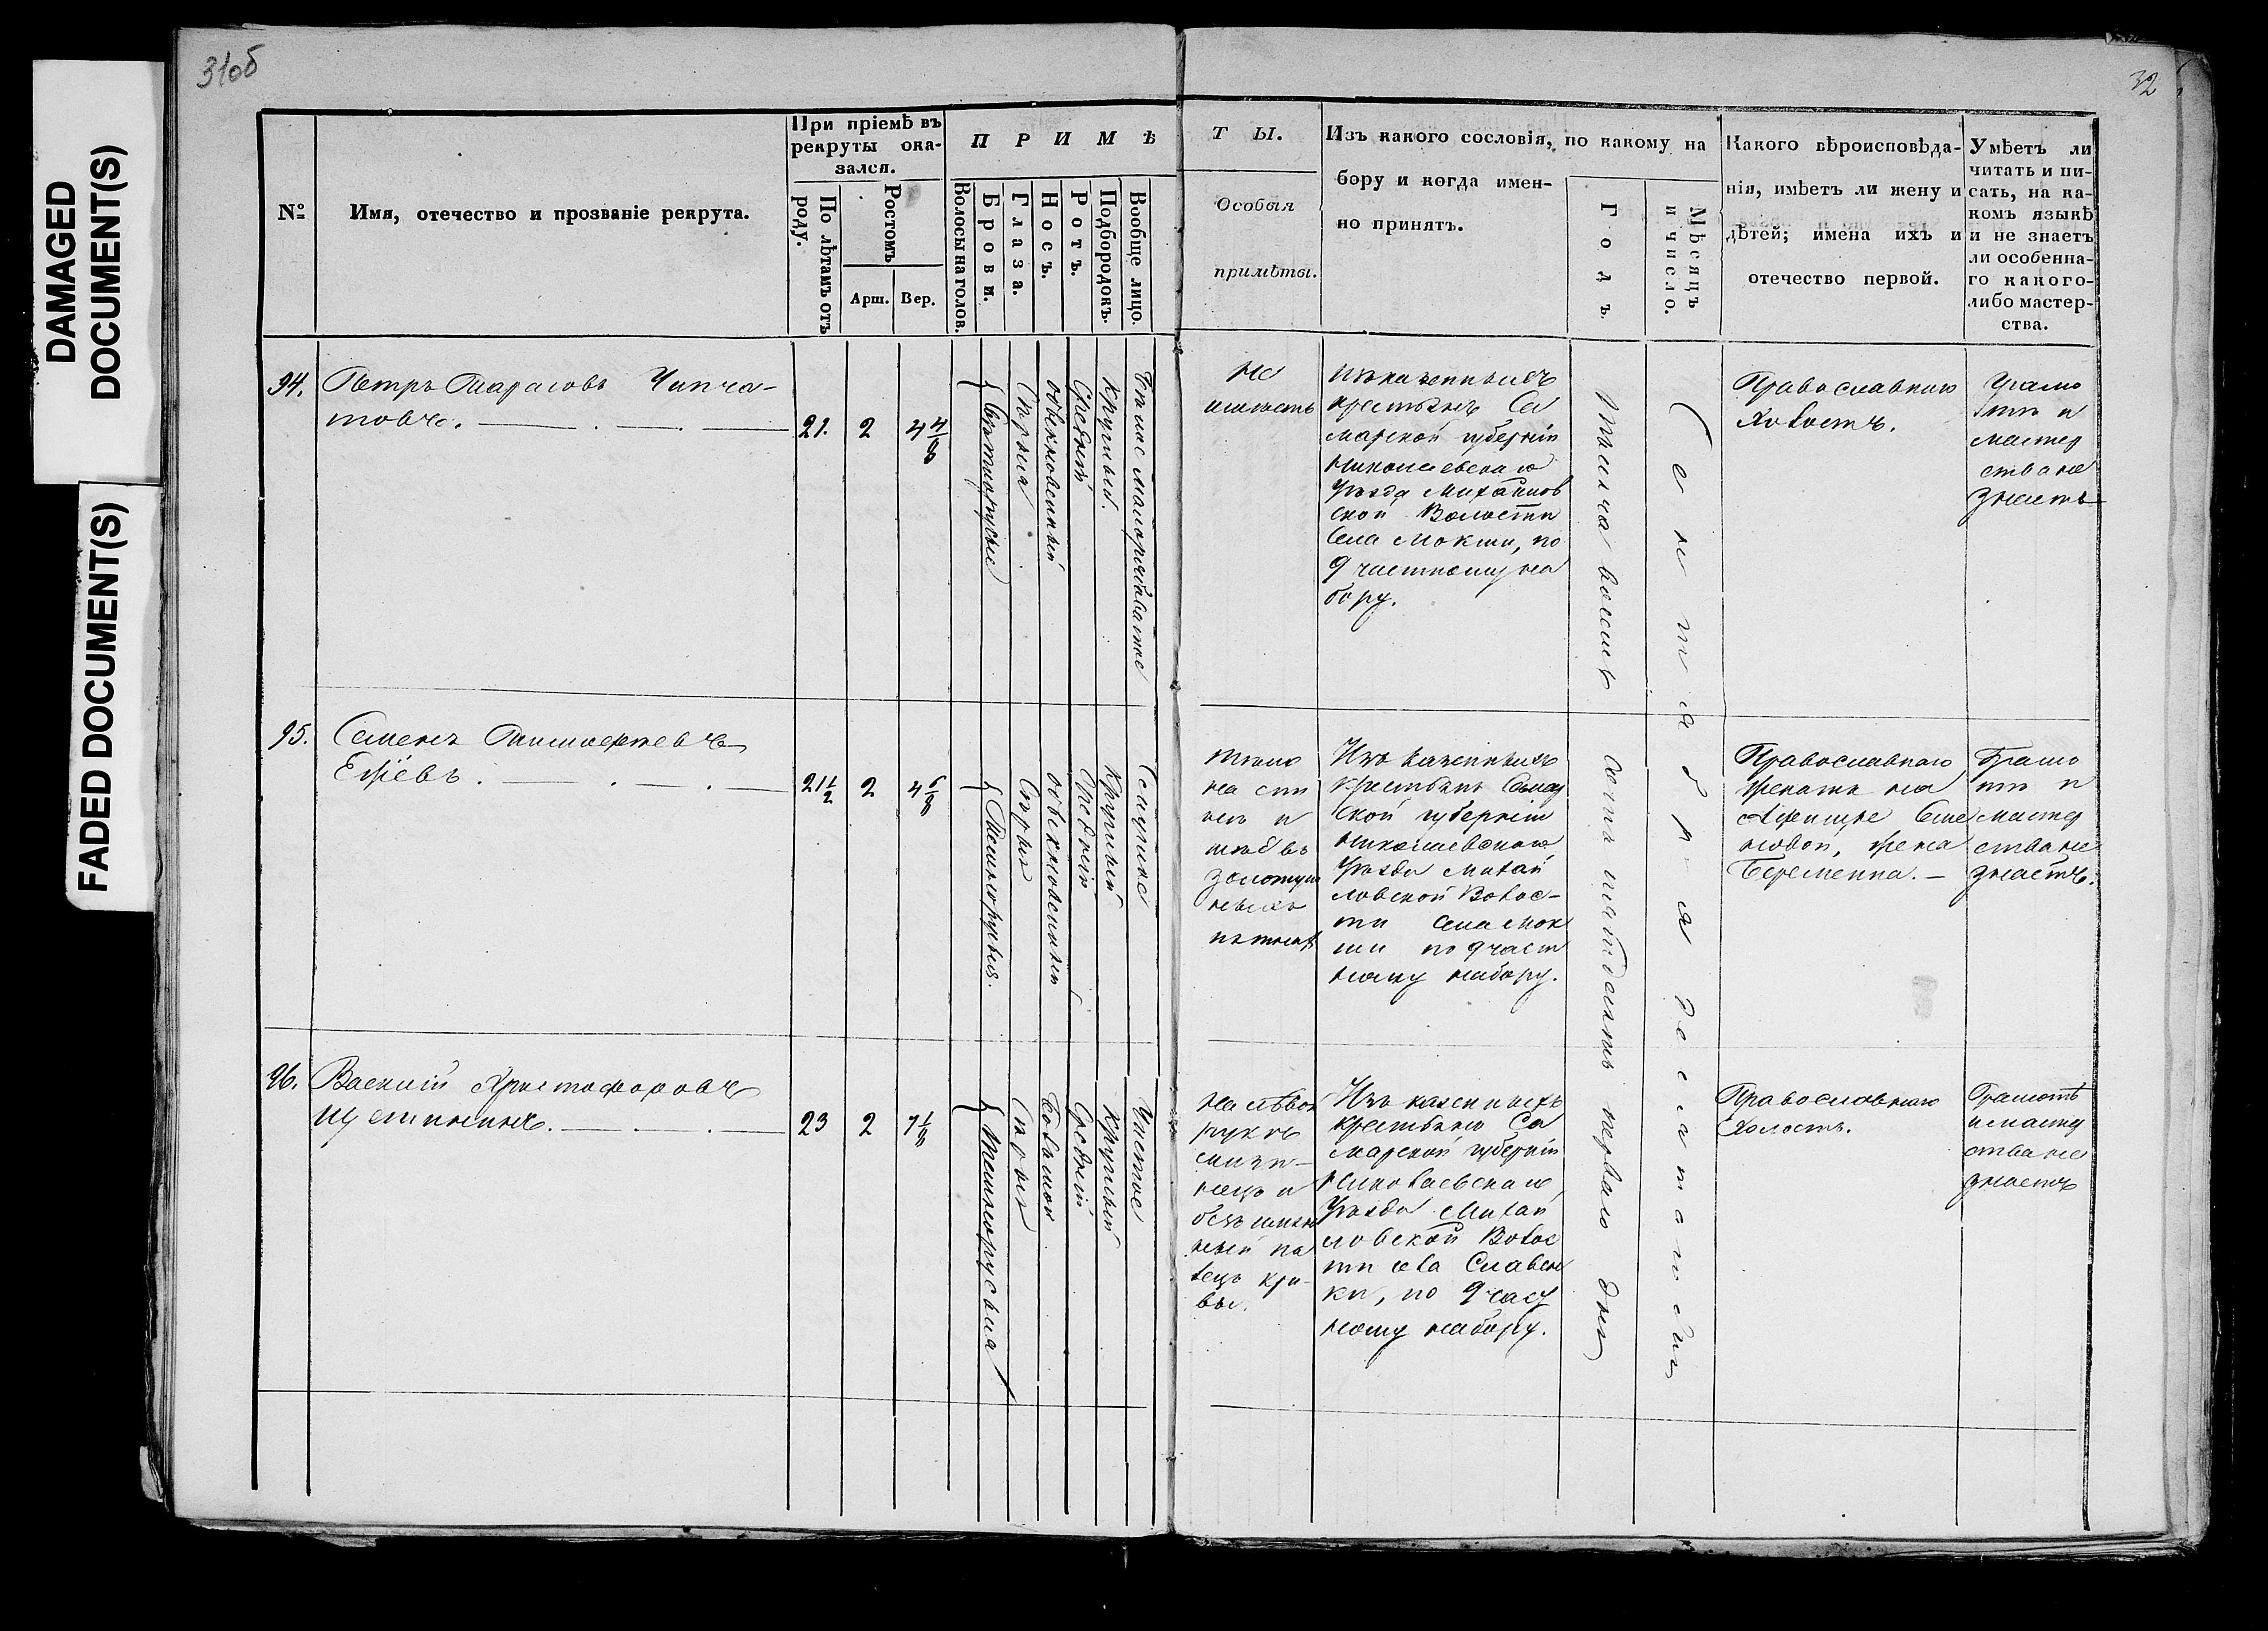 DAMAGED
DOCUMENT(S)
FADED DOCUMENT(S)
31об
32
№
Имя, отечество и прозваніе рекрута.
При пріемѣ въ
рекруты ока-
зался.
По лѣтамъ отъ
роду.
Ростомъ
Арш.
Вер.
ПРИМѢ
Волосы на голов.
Брови.
Глаза.
Носъ.
Ротъ.
Подбородокъ.
Вообще лицо.
ТЫ.
Особыя
примѣты.
Изъ какого сословія, по какому на
бору и когда имен-
но принятъ.
Годъ.
Мѣсяцъ
и число.
Какого вѣроисповѣда-
нія, имѣетъ ли жену и
дѣтей; имена ихъ и
отечество первой.
Умѣетъ ли
читать и пи-
сать, на ка-
комъ языкѣ
и не знаетъ
ли особенна-
го какого-
либо мастер-
ства.
94.
Петръ Тарасовъ Чипча-
товъ.
21.
2
4 4/8
Свѣтлорусые
Сѣрыя
обыкновенный
Средній
круглый.
Не
имѣетъ
Изъ казенныхъ
крестьянъ Са
марской губерніи
Николаевскаго
Уѣзда Михайлов
ской Волости
Села Мокши, по
9 частному на
бору.
Православнаго
Холостъ.
Грамо
тѣ и
мастер
ства не
знаетъ
95.
Семенъ Тимофеевъ
21 1/2
2
4 6/8
Темнорусыя.
Сѣрыя
обыкновенный
Средній
Круглый
на спи
нѣ и
Изъ казенныхъ
крестьянъ Самар
ской губерніи
Николаевскаго
Уѣзда Михай
ловской Волос-
ти Села Мок
ши по 9 част
ному набору.
Православнаго
женатъ на
Семе
новой, жена
беременна.
Грамо
тѣ и
мастер
ства не
знаетъ.
96.
Василій Христофоровъ
Щетининъ.
23
2
7 1/8
Темнорусыя
Сѣрыя
Большой
Средній
Круглый
Чистое
На лѣвой
рукѣ
мизи-
нецъ и
безъимян
ный па
лецъ кри-
вы.
Изъ казенныхъ
крестьянъ Са
марской губерніи
Николаевскаго
Уѣзда Михай
ловской Волос
ти села Славен
ки, по 9 част
ному набору.
Православнаго
Холостъ.
Грамотѣ
и мастер
ства не
знаетъ
Тысяча восемь сотъ пятдесятъ перваго дня
Сентября десятаго дня